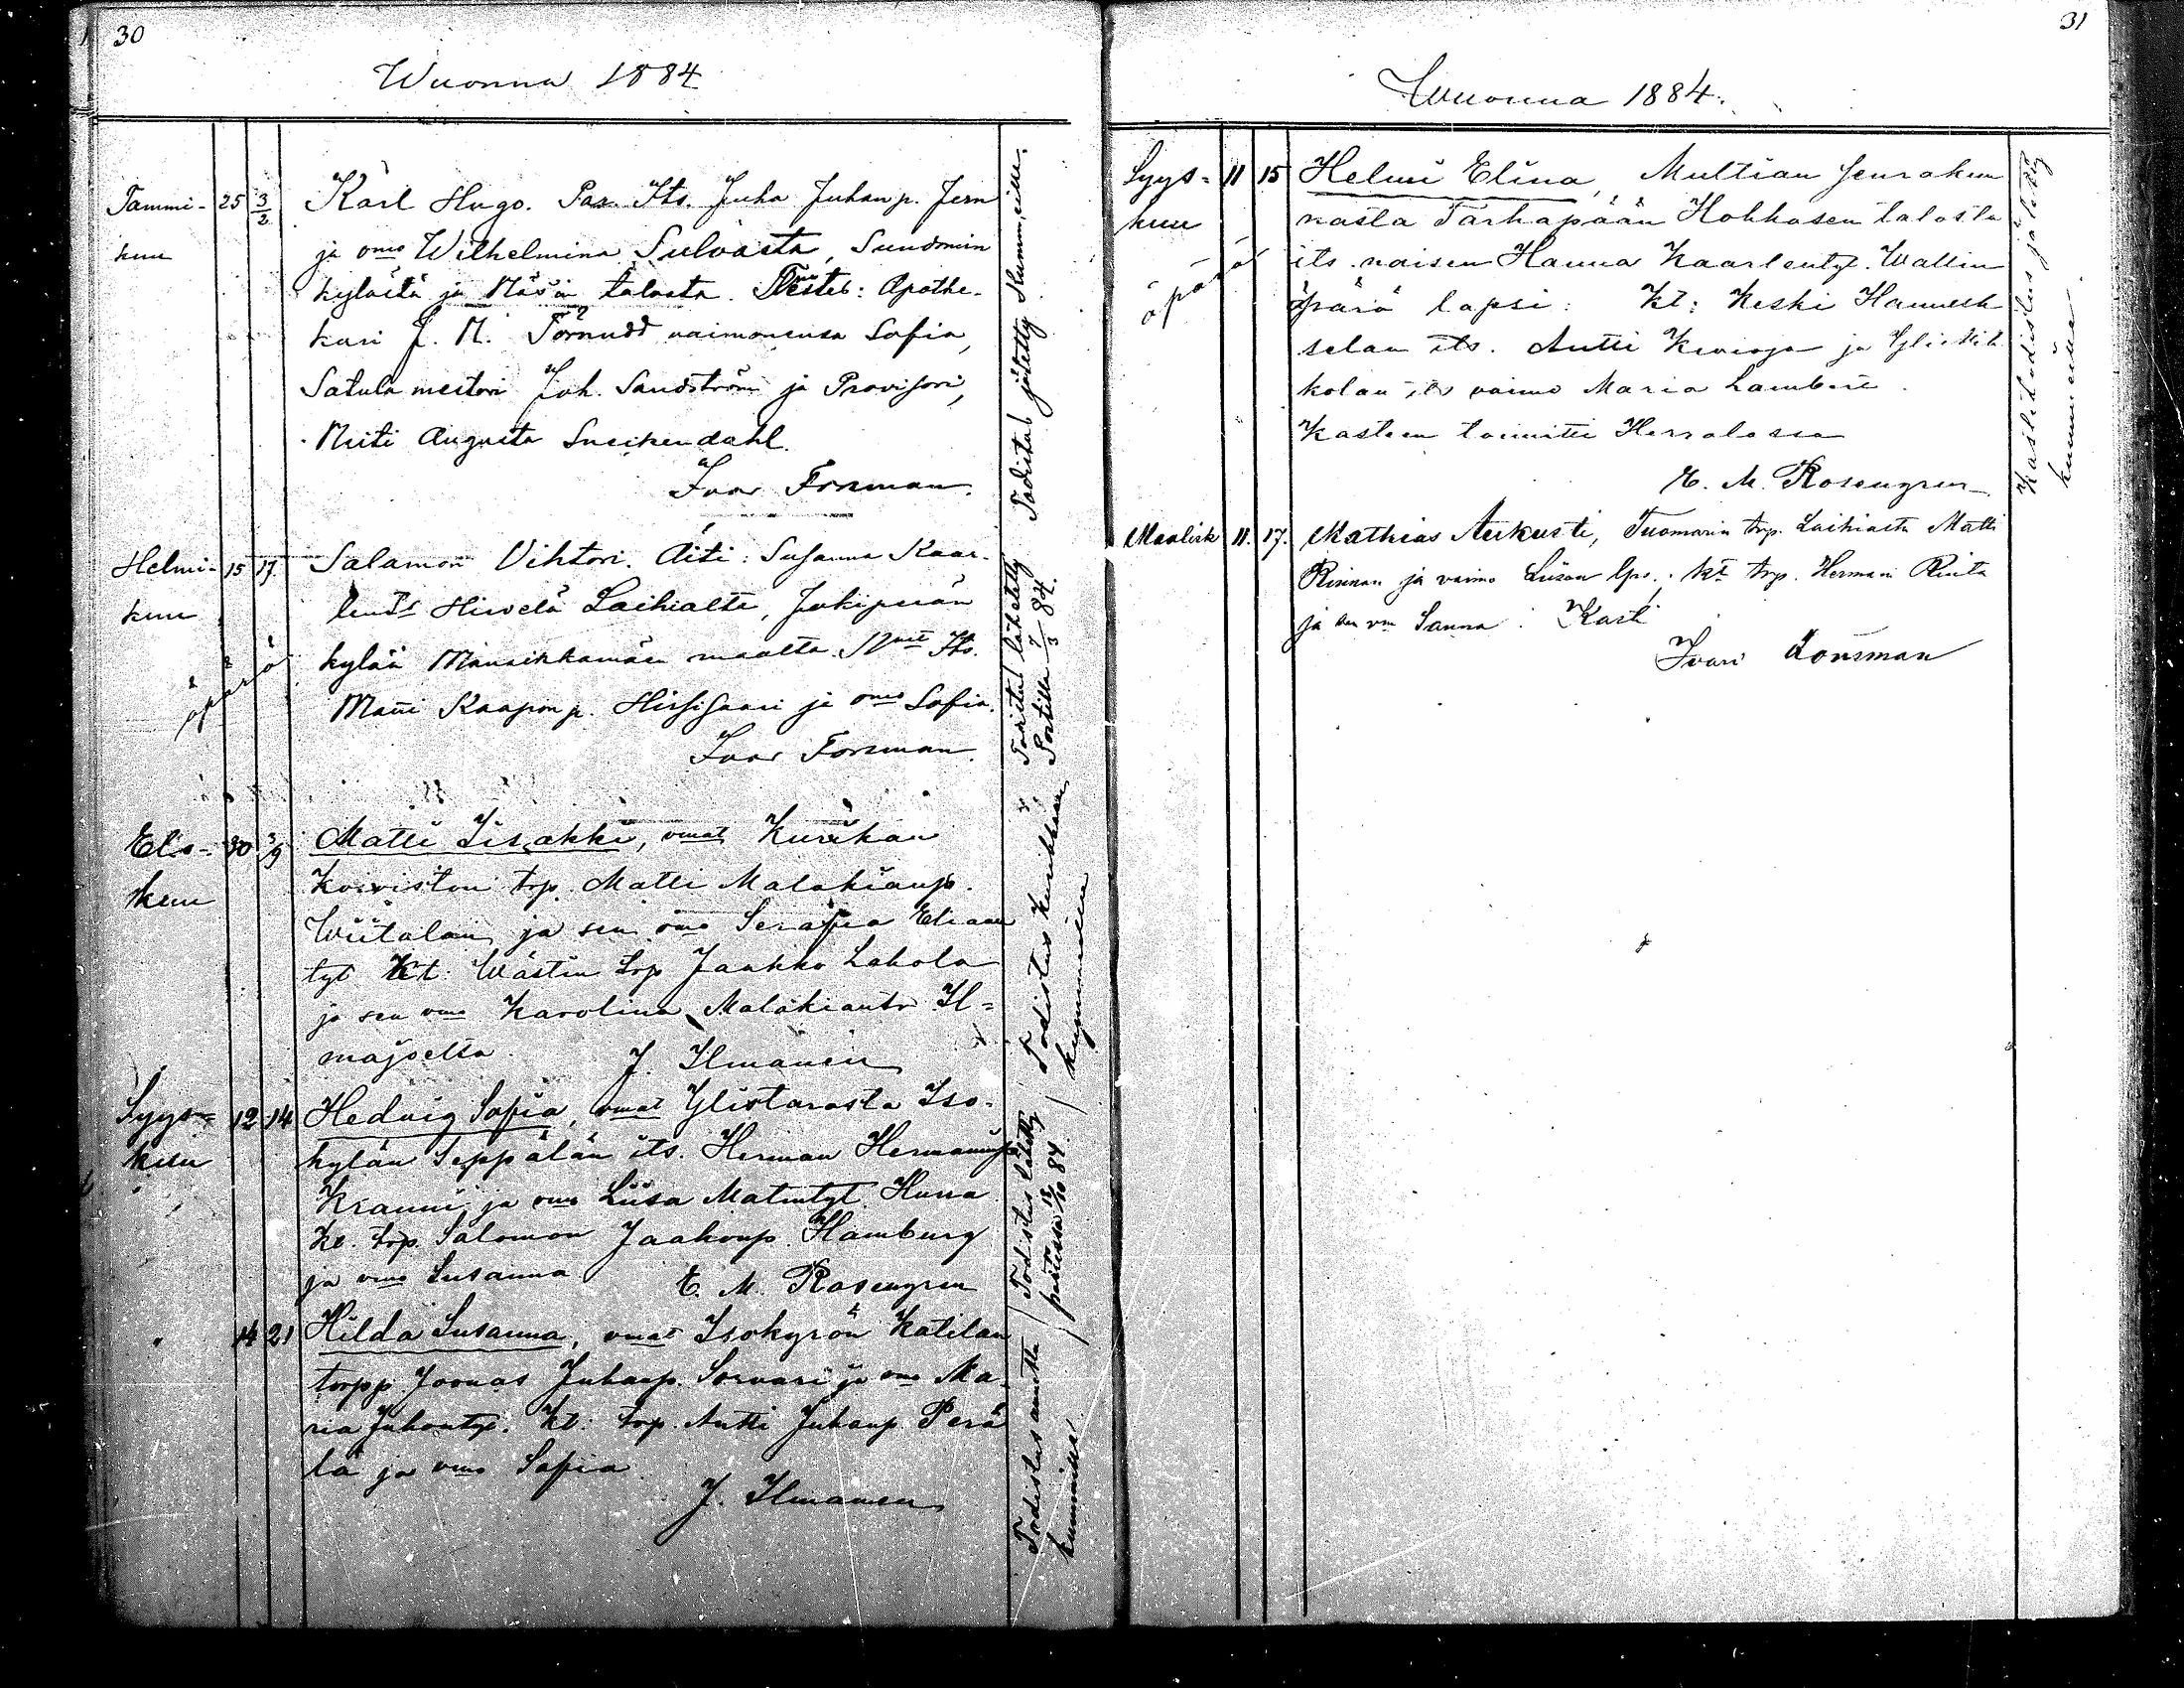 30
Wuonna 1884
Tammi- 25 3/2 Karl Hugo. Par. Its. Juha Juhanp. Jern
kuu ja omo Wilhelmina Sulvasta, Sundomin
kylästä ja Näsin talosta. Testes: Apothe-
kari J. M. Törnudd vaimonensa Sofia,
Satula mestari Joh. Sandström ja Provisori,
Neiti Augusta Sneckendahl.
Ivar Forsman.
Todistus jätetty Kummeille.
Helmi- 15 17. Salamon Vihtori. Äiti: Susanna Kaar-
kuu Hirvelä Laihialta, Jokiperän
äpärä kylän Mansikkamäen maalta. Its.
Matti Kaapon p. Hirsisaari ja omo Sofia.
Ivar Forsman.
Todistus lähetetty
Postille 7/3 84.
Elo- 30 3/9 Matti Iisakki, vmat Kurikan
kuu Koiviston trp. Matti Malakianp.
Wiitalan ja sen vmo Serafia Elian
tyt Kt: Wästin trp Jaakko Lakola
ja sen vmo Karolina Malakiantr Il-
majoelta. J. Ilmanen
Todistus Kurikkaan
kummeille
Syys- 12 14 Hedvig Sofia, vmat Ylistarosta Iso-
kuu kylän Seppälän its. Herman Hermaninp
Kranni ja vmo Liisa Matintyt. Huna
Kt. trp. Salomon Jaakonp. Hamburg
ja vmo Susanna E. M. Rosengren
Todistus lähetetty
postissa 18/10 84
14 21 Hilda Susanna, vmat Isokyrön Katilan
torpp. Joonas Juhanp. Sorvari ja vmo Ma-
ria Juhontyt. Kt: trp. Antti Juhanp. Perä
lä ja vmo Sofia.
J. Ilmanen
Todistus annettu
kummeille.
31
Wuonna 1884.
Syys- 11 15 Helmi Elina, Multian seurakun
kuu nasta Tarhapään Hokkasen talosta
äpärä its. naisen Hanna Kaarlentyt. Wallin
äpärä lapsi: Kt: Keski Hannuk
selan its. Antti Kevarja ja Yli Mik
kolan its vaimo Maria Lamberg.
Kasteen toimitti Herralassa
E. M. Rosengren
Kastetodistus jätetty
kummeille.
Maalisk 11. 17. Mathias Aukusti, Tuomarin trp. Laihialta Matti
Rinnan ja vaimo Liisan lps.; kt trp. Hermani Rinta
ja sen vm Sanna. Kasti
Ivari Forsman